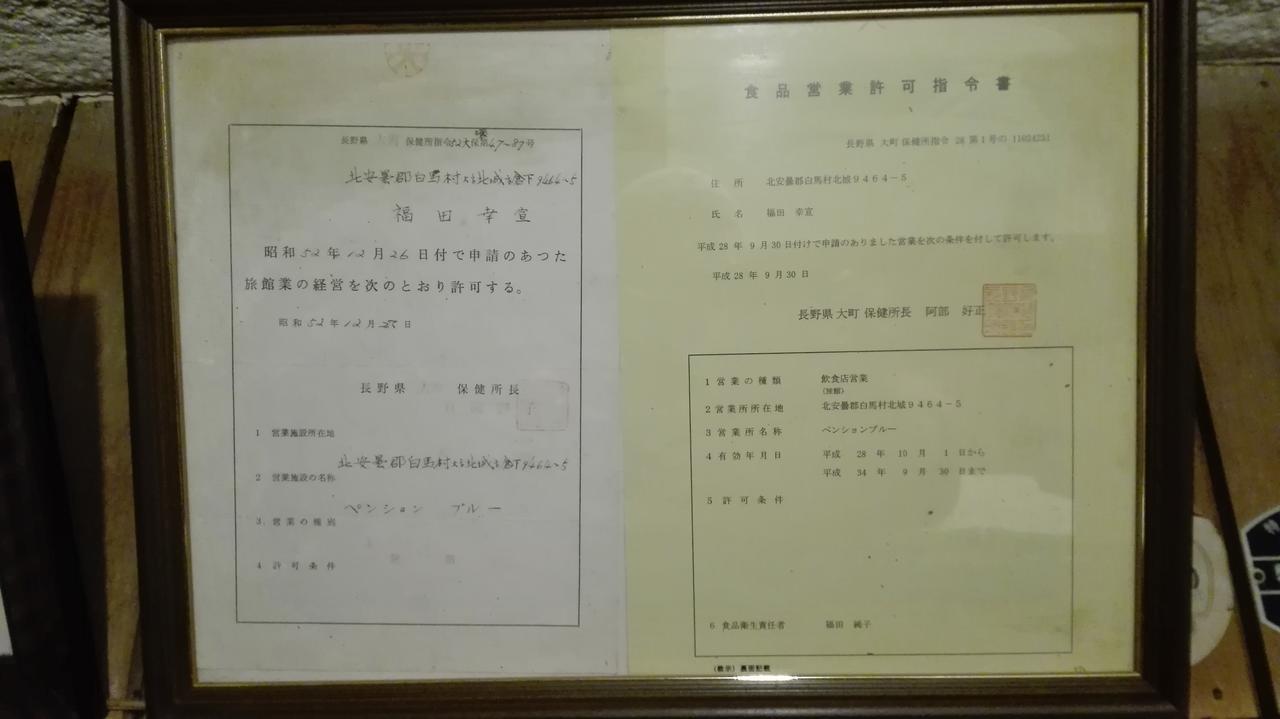 長野県 大町 保健所指令52大保第47-87号
北安曇郡白馬村大字北城字 9464-5
福田幸宣
昭和52年12月26日付で申請のあつた
旅館業の経営を次のとおり許可する。
昭和52年12月 日
長野県 保健所長
1 営業施設所在地
北安曇郡白馬村大字北城字 9464-5
2 営業施設の名称
ペンション ブルー
3 営業の種別
4 許可条件
食品営業許可指令書
長野県 大町 保健所指令 28 第1号の 11024251
住所 北安曇郡白馬村北城9464-5
氏名 福田 幸宣
平成28年 9月30日付けで申請のありました営業を次の条件を付して許可します。
平成28年 9月30日
長野県 大町 保健所長 阿部 好正
1 営業の種類 飲食店営業
(旅館)
2 営業所所在地 北安曇郡白馬村北城9464-5
3 営業所名称 ペンションブルー
4 有効年月日 平成 28年 10月 1日から
平成 34年 9月 30日まで
5 許可条件
6 食品衛生責任者 福田 純子
(教示)裏面記載